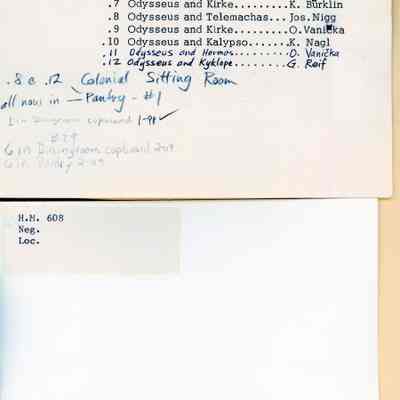 .7 Odysseus and Kirke.........K. Bürklin
.8 Odysseus and Telemachas...Jos.Nigg
.9 Odysseus and Kirke........O.Vanička
.10 Odysseus and Kalypso......K. Nagl
.11 Odysseus and Hermes.........O. Vanička
.12 Odysseus and Kyklope........G. Reif
.8 & .12 Colonial Sitting Room
all now in Pantry - #1
cupboard 1-91 ✓
#29
6 in Diningroom cupboard 2-09
6 in Pantry 2-09
H.M. 608
Neg.
Loc.